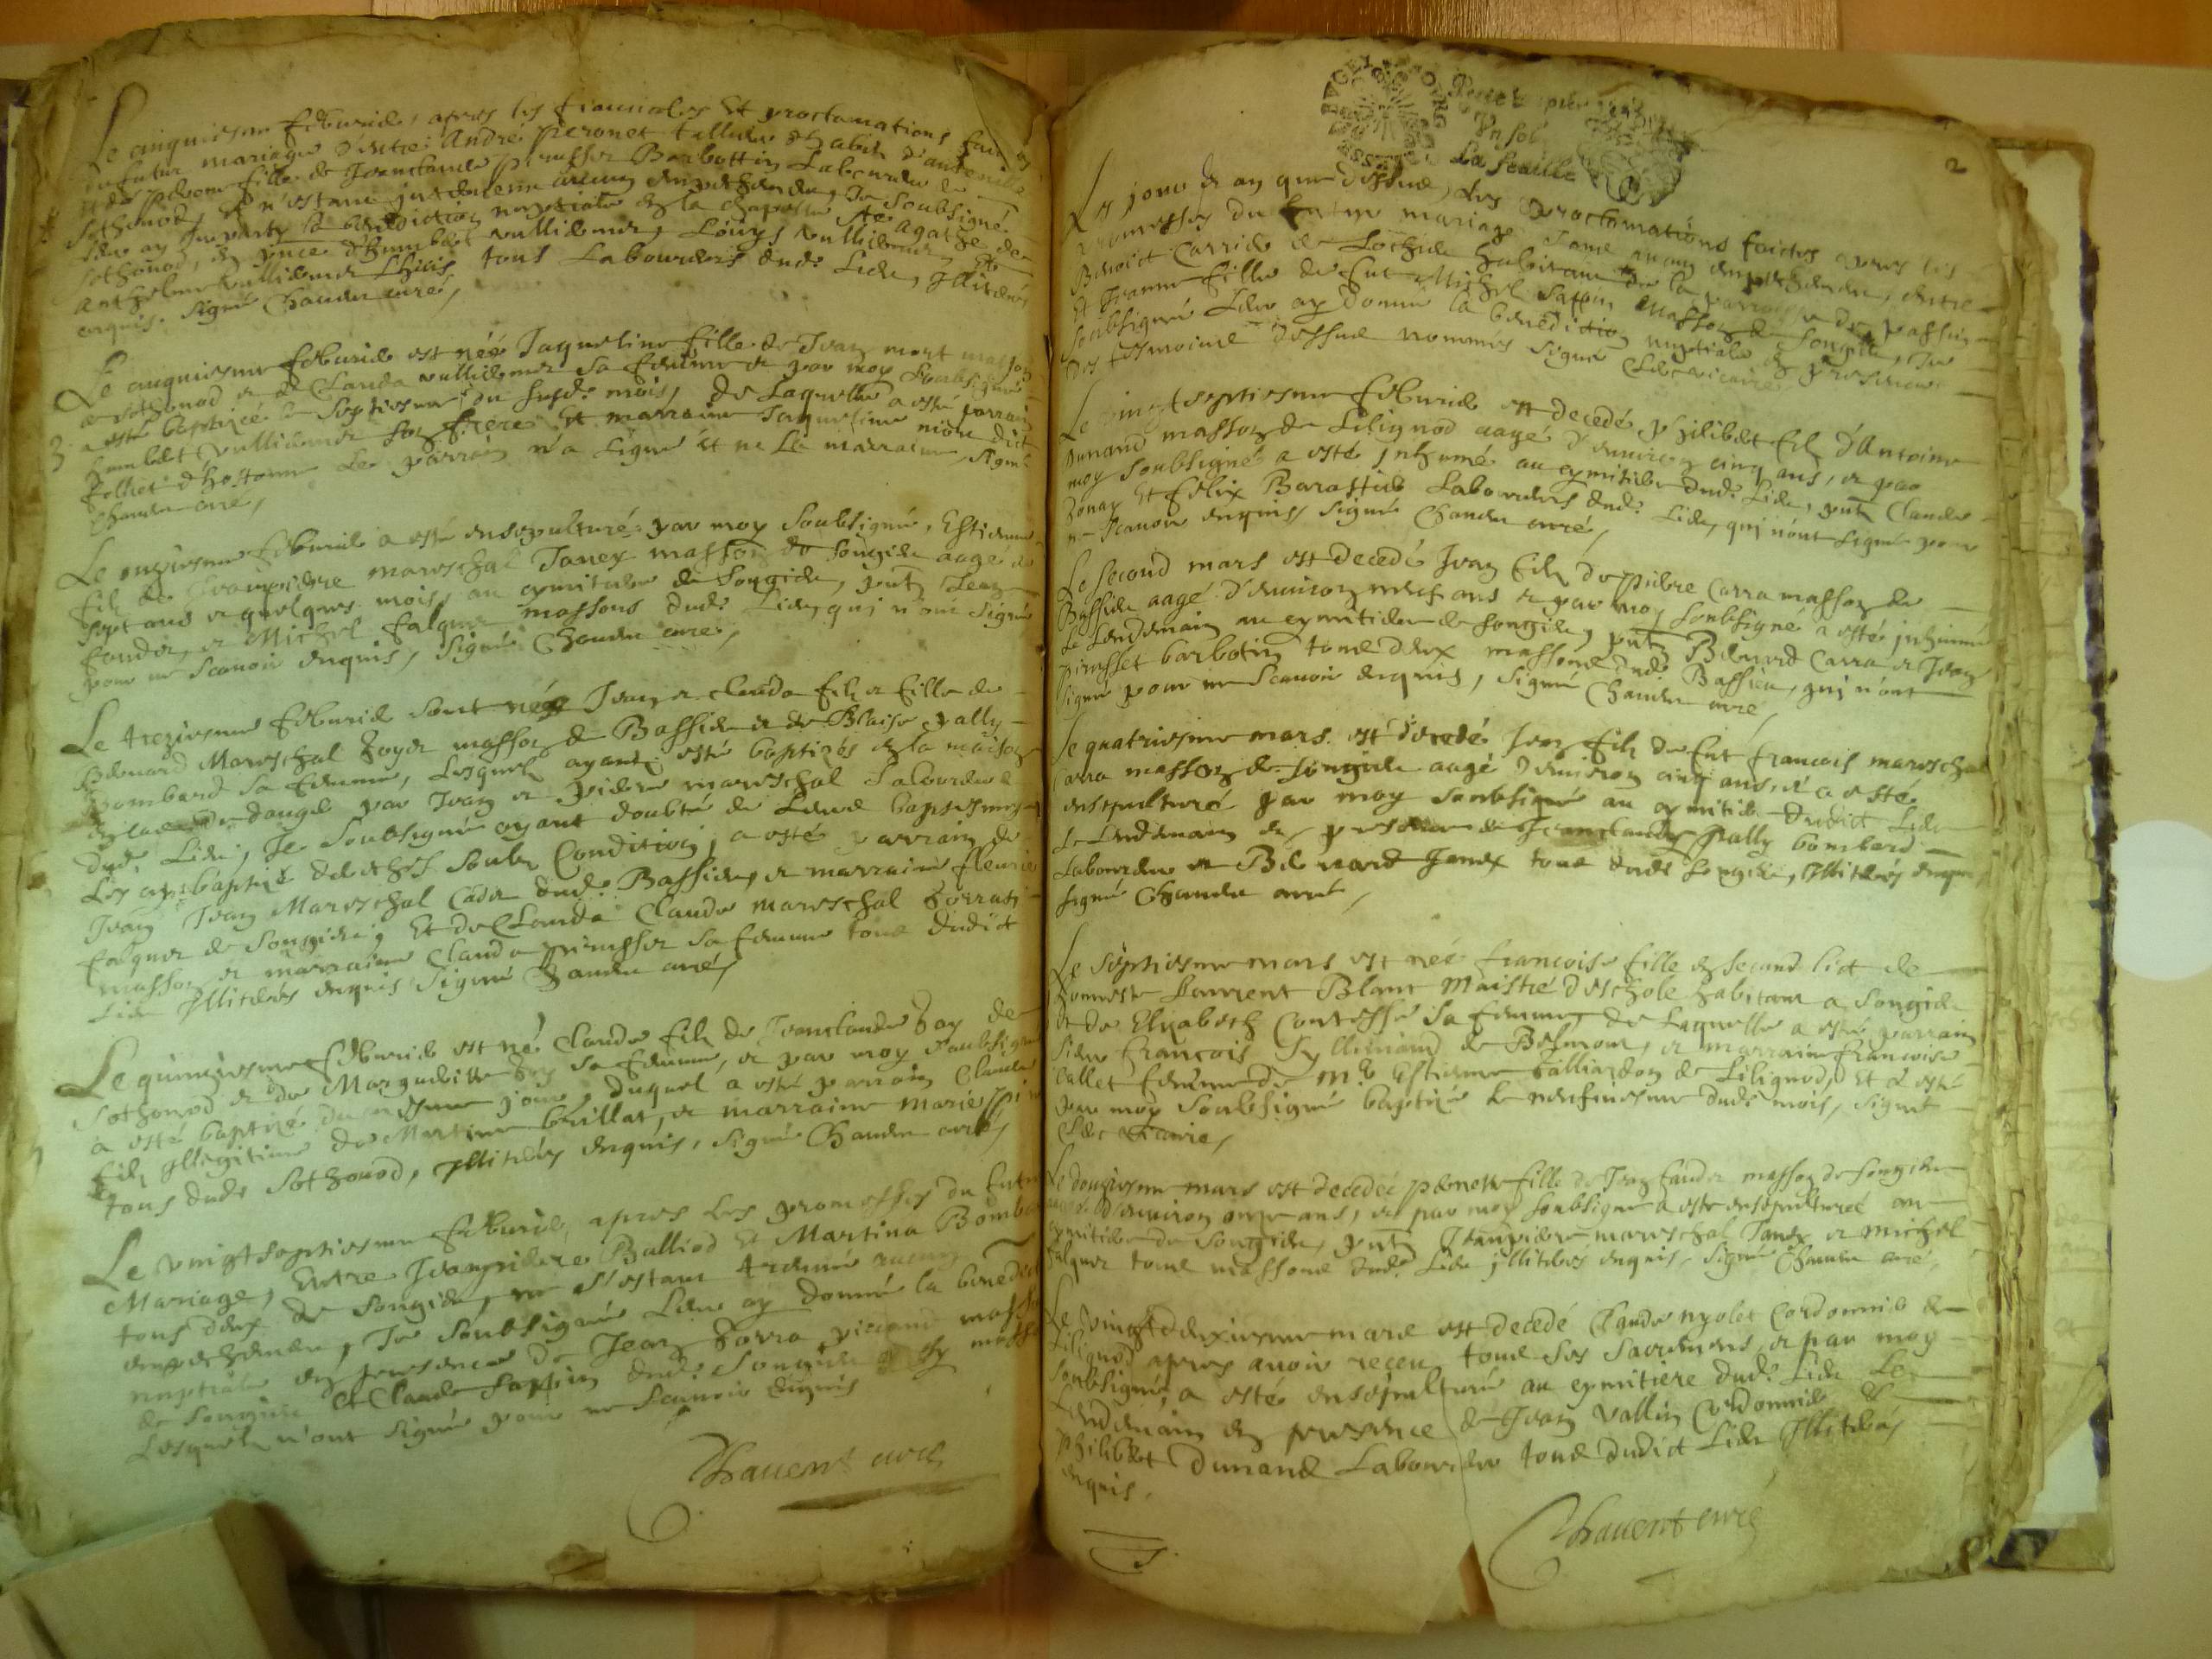 Le cinquiesme febvrier, apres les fiancailles Et proclamations faictes
du futur mariage d'entre André Peronet tallieur habit d'auteville
fille de Jeanclaude pinusset Barbottin Laboureur de
Sothonod, n'estant aucun empeschement, Je Soubsigné
leur ay Imparty la benediction nuptiale en la chapelle Ste Agathe de
Sothonod, en pnce d'humbert vulliemer, Louys vulliemer et
anthelme vulliemier tous Laboureurs dudt Lieu, Illiterés
enquis. Signé Chauent curé,
Le cinquiesme febvrier est née Jaqueline fille de Jean mort masson
de sothonod et de Clauda vulliemer sa femme et par moy soubsigné
a esté baptizée le septiesme du susdt mois, de laquelle a esté parrain
humbert vulliemer son frere Et marraine Jaqueline
d'hostonne Le parrain n'a signé et ne la marraine, signé
Chauent curé,
Le onziesme febvrier a esté ensepulturé par moy Soubsigné, Estienne
filz de Jeanpierre mareschal Janex masson de songieu aagé de
sept ans et quelques mois, au cymitiere de Songieu, pntz Jean
fander, et Michel falquer massons dudt Lieu, qui n'ont signé
pour ne scauoir enquis, Signé Chauent curé,
Le treziesme febvrier sont néez Jean et clauda filz et fille de
Bernard Mareschal masson de Bassieu et de Blaise pally
bombard sa femme, Lesquels ayantz esté baptizés en la maison
danger par Jean et pierre mareschal Laboureurs
dudt Lieu, Je Soubsigné ayant doubté de Leur baptesme
Les ay baptizé derechef soubz Condition, a esté parrain de
Jean Jean Mareschal Cadet dudt Bassieu, et marraine fleurie
falquer de Songieu, Et de Clauda Claude mareschal
masson et marraine Clauda pinusset sa femme tous dudict
Lieu Illiterés enquis Signé Chauent curé,
Le quinziesme febvrier est né Claude filz de Jeanclaude Goy de
Sothonod et de Marguerite sa femme, et par moy Soubsigné
a esté baptizé du mesme jour, duquel a esté parrain Claude
filz Illegitime de Martine brillat, et marraine marie
tous dudt Sothonod, Illiterés enquis, signé Chauent curé,
Le vingtseptiesme febvrier, apres Les promesses du futur
Mariage, Entre Jeanpierre Balliod Et Martina Bombard
tous deux de Songieu, ne s'estant treuué aucun
empeschement, Je Soubsigné Leur ay donné la benediction
nuptiale en presence de Jean masson
de Songieu et Claude Sappin dudt Songieu
Lesquels n'ont signé pour ne Scauoir enquis
Chauent curé
2
Vn sol
La feuille
Les jour et an que dessus, Les proclamations faictes apres les
promesses du futur mariage sans aucun empeschement, entre
Benoict Carrier de Lochieu habitant de la parroisse de passin
Et Jeanne fille de fut Michel Sappin masson de Songieu, Je
Soubsigné Leur ay donné la benediction nuptiale en presence
des tesmoins dessus nommés Signé vicaire
Le vingtseptiesme febvrier est decedé philibert filz d'Antoine
Dunand masson de Lilignod aagé d'enuiron cinq ans, et par
moy soubsigné a esté inhumé au cymitiere dudt Lieu, pntz Claude
Et felix Laboureurs dudt Lieu, qui n'ont signé pour
ne Scauoir enquis, Signé Chauent curé,
Le second mars est decedé Jean filz de pierre Carra masson de
Bassieu aagé d'enuiron neuf ans et par moy soubsigné a esté inhumé
Le Lendemain au cymitiere de songieu, pntz Bernard Carra et Jean
pinusset barbotin tous deux massons dudt Bassieu, qui n'ont
signé pour ne Scauoir enquis, Signé Chauent curé,
Le quatriesme mars est decedé Jean filz de fut francois mareschal
Carra masson de songieu aagé d'enuiron cinq ans, et a esté
ensepulturé par moy soubsigné au cymitiere dudict Lieu
Le Lendemain en presence de Jeanclaude pally bombard
Laboureur et Bernard Janex tous dudt Songieu, Illiterés enquis,
signé Chauent curé,
Le septiesme mars est née francoise fille en second lict de
honneste Laurent Blanc Maistre d'eschole habitant a Songieu
et de Elizabeth Contesse sa femme, de Laquelle a esté parrain
sieur francois de Belmont, et marraine francoise
Callet femme de mr Estienne Galliardon de Lilignod, Et a esté
par moy Soubsigné baptizé le neufuiesme dudt mois, signé
vicaire,
Le douziesme mars est decedée pernette fille de Jean fander masson de songieu
aagée d'enuiron onze ans, et par moy soubsigné a esté ensepulturée au
cymitiere de Songieu, pntz Jeanpierre mareschal Janex et michel
falquer tous massons dudt Lieu illiterés enquis, Signé Chauent curé,
Le vingtdeuxiesme mars est decedé Claude nyolet Cordonnier de
Lilignod apres auoir receu tous ses sacremens, et par moy
soubsigné, a esté ensepulturé au cymitiere dudt Lieu Le
Lendemain en presence de Jean vallin Cordonnier et
philibert Dunand Laboureur tous dudict Lieu Illiterés
enquis.
Chauent curé